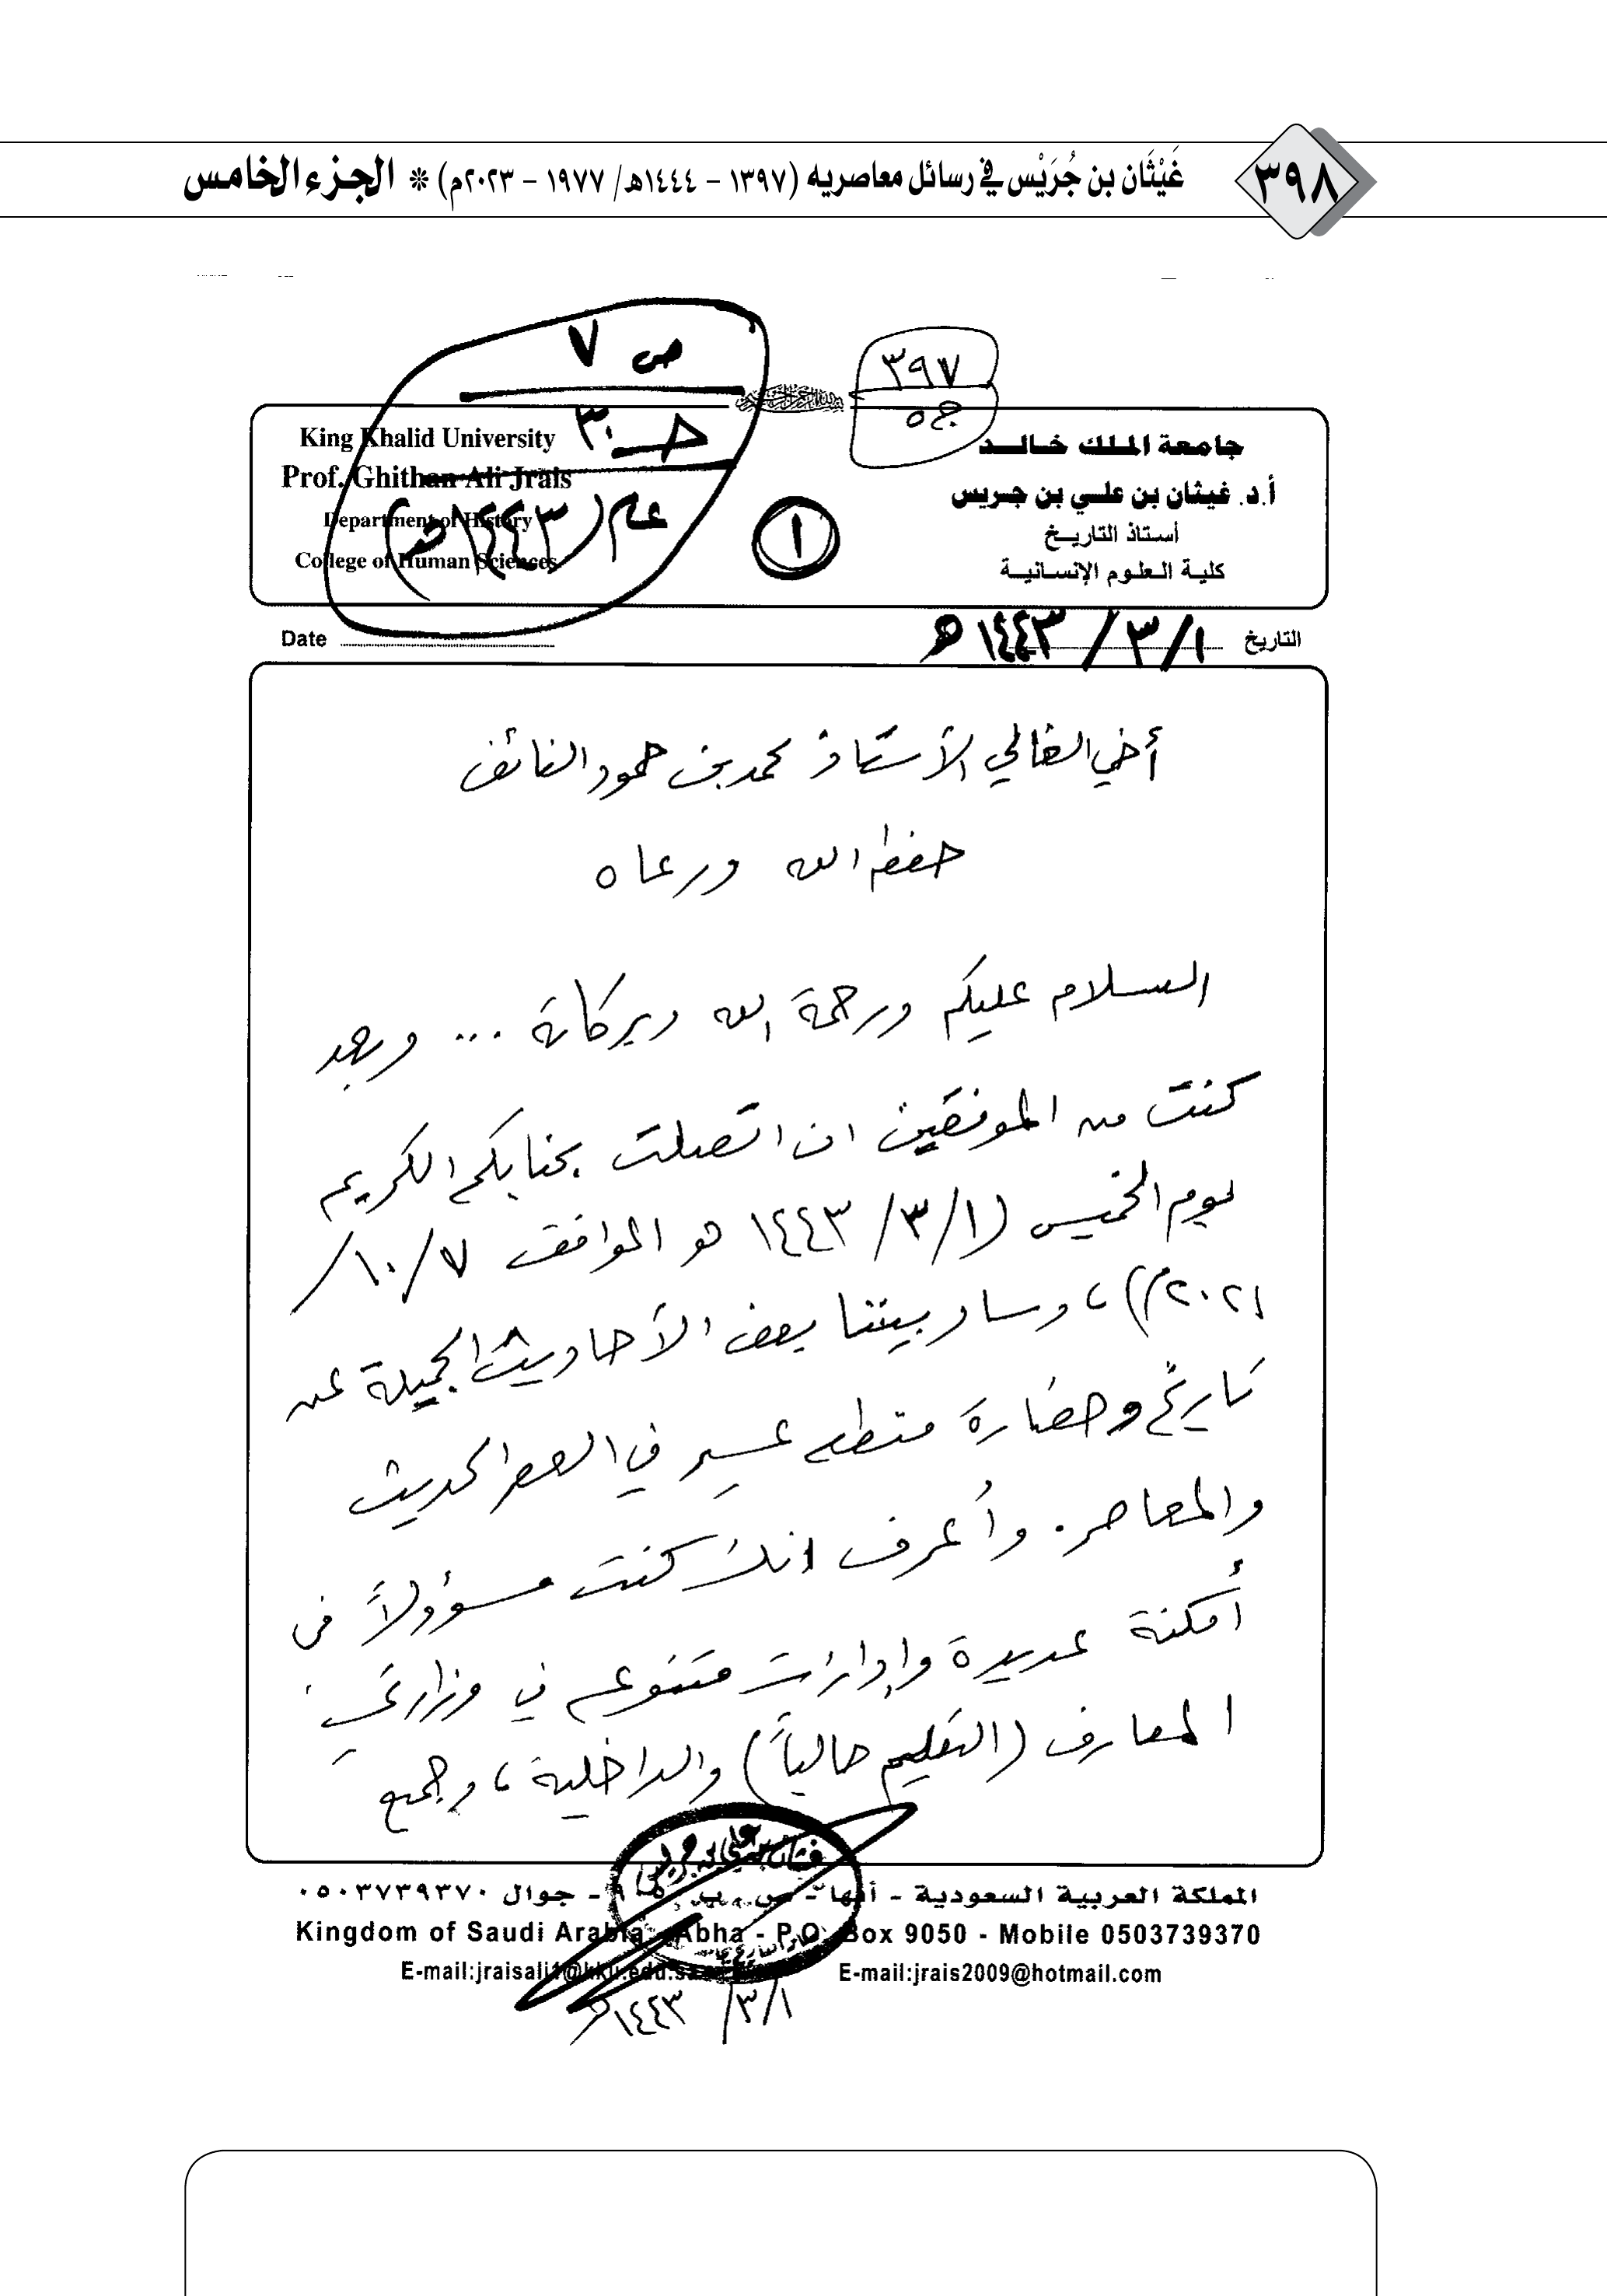 ٣٩٨
غَيْثَان بن جُرَيْس في رسائل معاصريه (١٣٩٧ - ١٤٤٤هـ/ ١٩٧٧ - ٢٠٢٣م) * الجزء الخامس
ص ٧
ج ٣٠
عام (١٤٤٣هـ)
٣٩٧
ج ٥
جامعة الملك خالد
أ.د. غيثان بن علي بن جريس
أستاذ التاريخ
كلية العلوم الإنسانية
١
King Khalid University
Prof. Ghithan Ali Jrais
Department of History
College of Human Sciences
التاريخ ١/ ٣/ ١٤٤٣هـ
Date
أخي الغالي الأستاذ محمد بن حمود النائف
حفظه الله ورعاه
السلام عليكم ورحمة الله وبركاته ... وبعد
كنت من الموفقين ان اتصلت بجنابكم الكريم
يوم الخميس (١/ ٣/ ١٤٤٣ هـ الموافق ٧/ ١٠/
٢٠٢١م)، وساد بيننا بعض الأحاديث الجميلة عن
تاريخ وحضارة منطقة عسير في العصر الحديث
والمعاصر. وأعرف انك كنت مسؤولاً في
أمكنة عديدة وإدارات متنوعة في وزارتي
المعارف (التعليم حالياً) والداخلية، وجميع
غيثان بن علي بن جريس
المملكة العربية السعودية - أبها - ص. ب ٩٠٥٠ - جوال ٠٥٠٣٧٣٩٣٧٠
Kingdom of Saudi Arabia - Abha - P.O. Box 9050 - Mobile 0503739370
E-mail:jraisali1@kku.edu.sa E-mail:jrais2009@hotmail.com
١/ ٣/ ١٤٤٣هـ